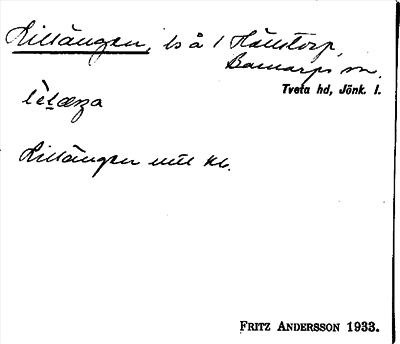 Lillängen, ls å 1 Hällstorp,
Barnarps sn.
Tveta hd, Jönk. l.
Lillängen utt kb.
FRITZ ANDERSSON 1933.